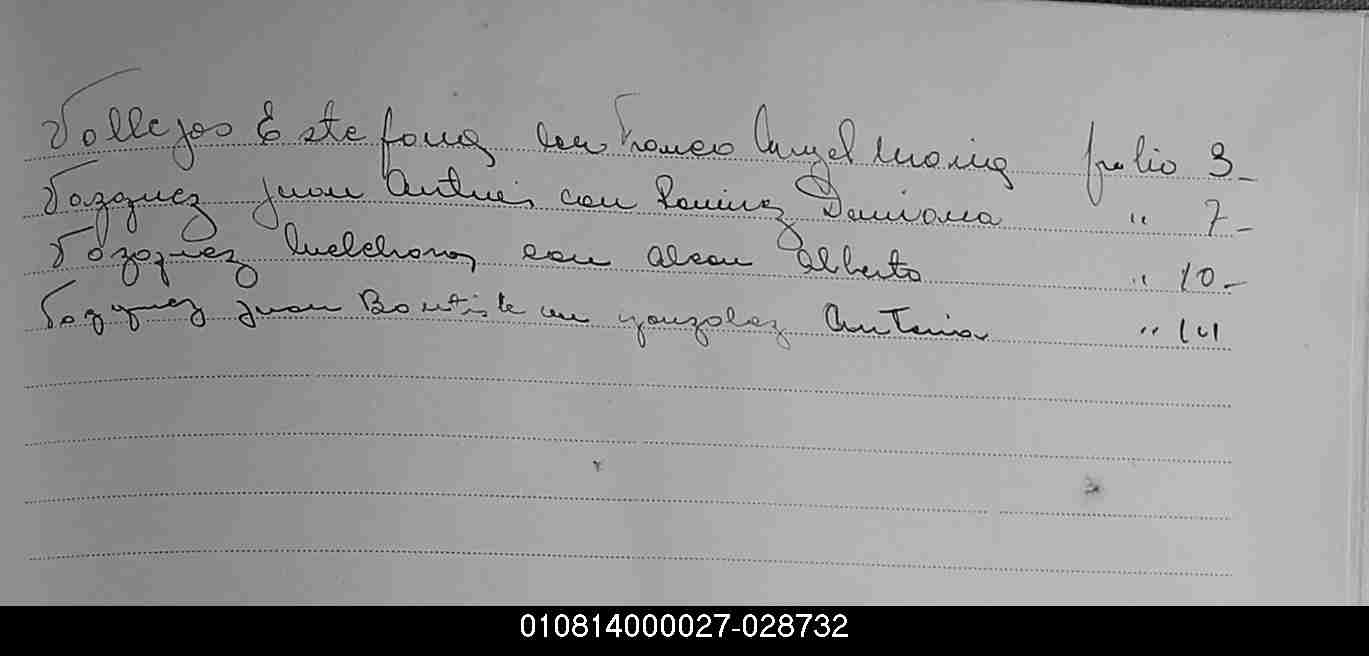 Vallejos Estefana con Franco Angel Maria Julio 3-
Vazquez Juan Antonio con Ramirez Damiana " 7-
Vazquez Melchora con Alberto " 10-
Vazquez Juan Bautista con Gonzalez Antonia " 14
010814000027-028732